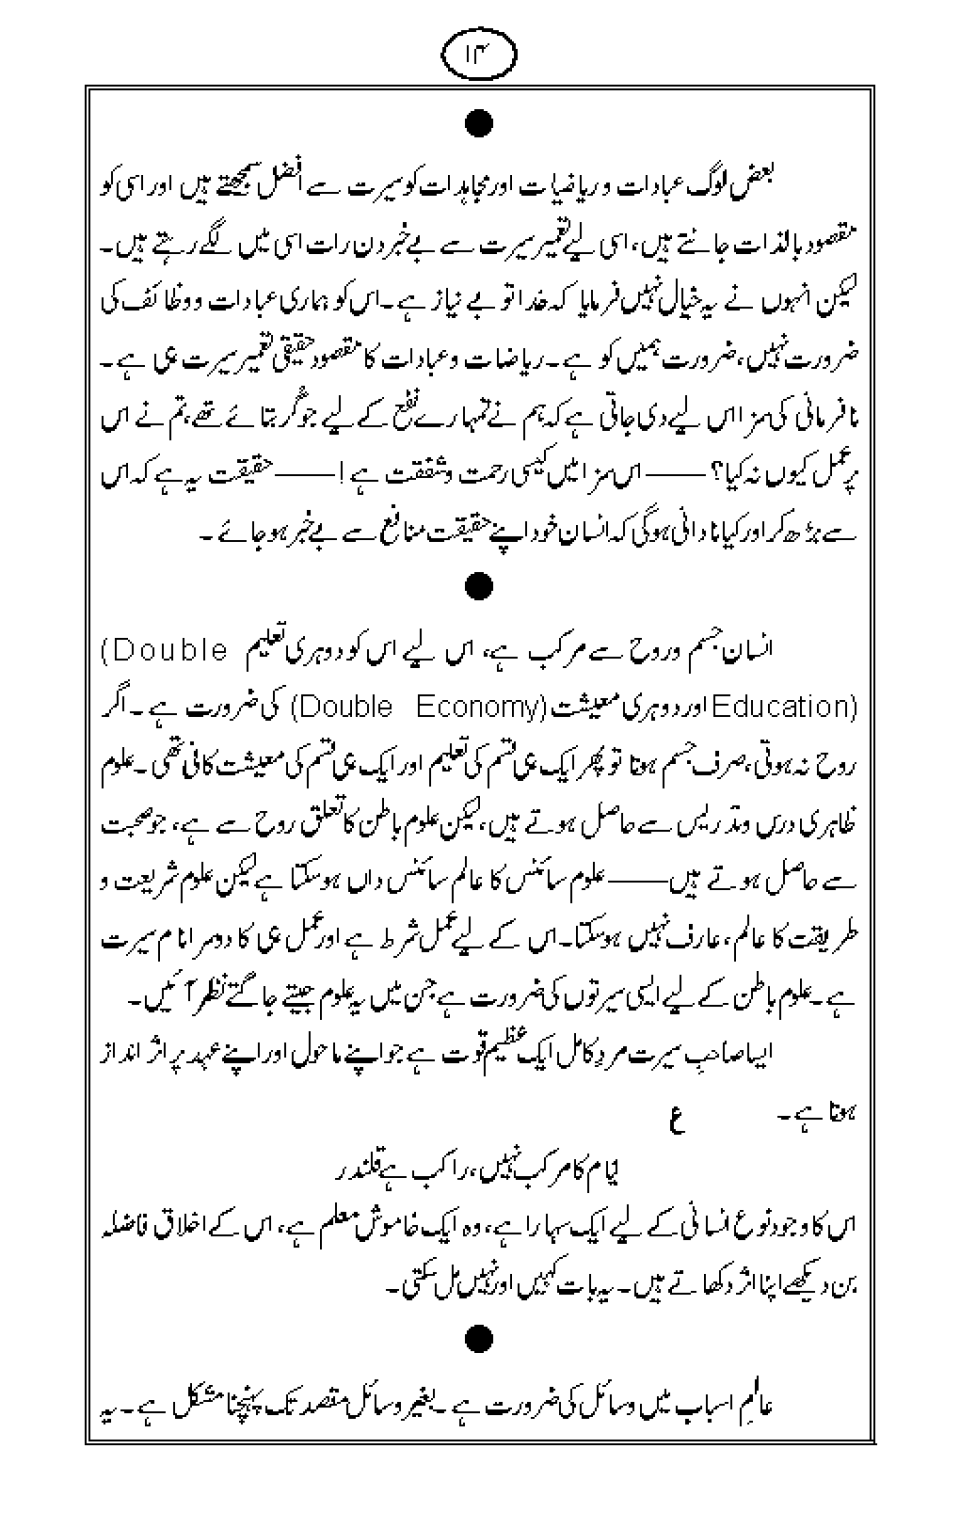 ۱۴
●
بعض لوگ عبادات و ریاضیات اور مجاہدات کو سیرت سے افضل سمجھتے ہیں اور اسی کو
مقصود بالذات جانتے ہیں، اسی لیے تعمیر سیرت سے بے خبر دن رات اسی میں لگے رہتے ہیں۔
لیکن انہوں نے یہ خیال نہیں فرمایا کہ خدا تو بے نیاز ہے۔ اس کو ہماری عبادات و وظائف کی
ضرورت نہیں، ضرورت ہمیں کو ہے۔ ریاضات و عبادات کا مقصود حقیقی تعمیر سیرت ہی ہے۔
نافرمانی کی سزا اس لیے دی جاتی ہے کہ ہم نے تمہارے نفع کے لیے جو گُر بتائے تھے، تم نے اس
پر عمل کیوں نہ کیا؟ —— اس سزا میں کیسی رحمت و شفقت ہے! —— حقیقت یہ ہے کہ اس
سے بڑھ کر اور کیا نادانی ہوگی کہ انسان خود اپنے حقیقت منافع سے بے خبر ہو جائے ۔
●
انسان جسم و روح سے مرکب ہے، اس لیے اس کو دوہری تعلیم (Double
Education) اور دوہری معیشت (Double Economy) کی ضرورت ہے۔ اگر
روح نہ ہوتی، صرف جسم ہوتا تو پھر ایک ہی قسم کی تعلیم اور ایک ہی قسم کی معیشت کافی تھی۔ علوم
ظاہری درس و تدریس سے حاصل ہوتے ہیں، لیکن علوم باطن کا تعلق روح سے ہے، جو صحبت
سے حاصل ہوتے ہیں —— علوم سائنس کا عالم سائنس داں ہوسکتا ہے لیکن علوم شریعت و
طریقت کا عالم، عارف نہیں ہوسکتا۔ اس کے لیے عمل شرط ہے اور عمل ہی کا دوسرا نام سیرت
ہے۔ علوم باطن کے لیے ایسی سیرتوں کی ضرورت ہے جن میں یہ علوم جیتے جاگتے نظر آئیں۔
ایسا صاحبِ سیرت مردِ کامل ایک عظیم قوت ہے جو اپنے ماحول اور اپنے عہد پر اثر انداز
ہوتا ہے۔ ع
ایام کا مرکب نہیں، راکب ہے قلندر
اس کا وجود نوع انسانی کے لیے ایک سہارا ہے، وہ ایک خاموش معلم ہے، اس کے اخلاق فاضلہ
بن دیکھے اپنا اثر دکھاتے ہیں۔ یہ بات کہیں اور نہیں مل سکتی۔
●
عالمِ اسباب میں وسائل کی ضرورت ہے۔ بغیر وسائل مقصد تک پہنچنا مشکل ہے۔ یہ